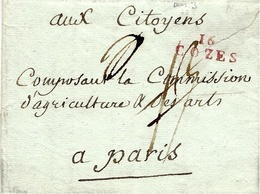 aux Citoyens
16
COZES
Composant la Commission
d'agriculture & des arts
a paris